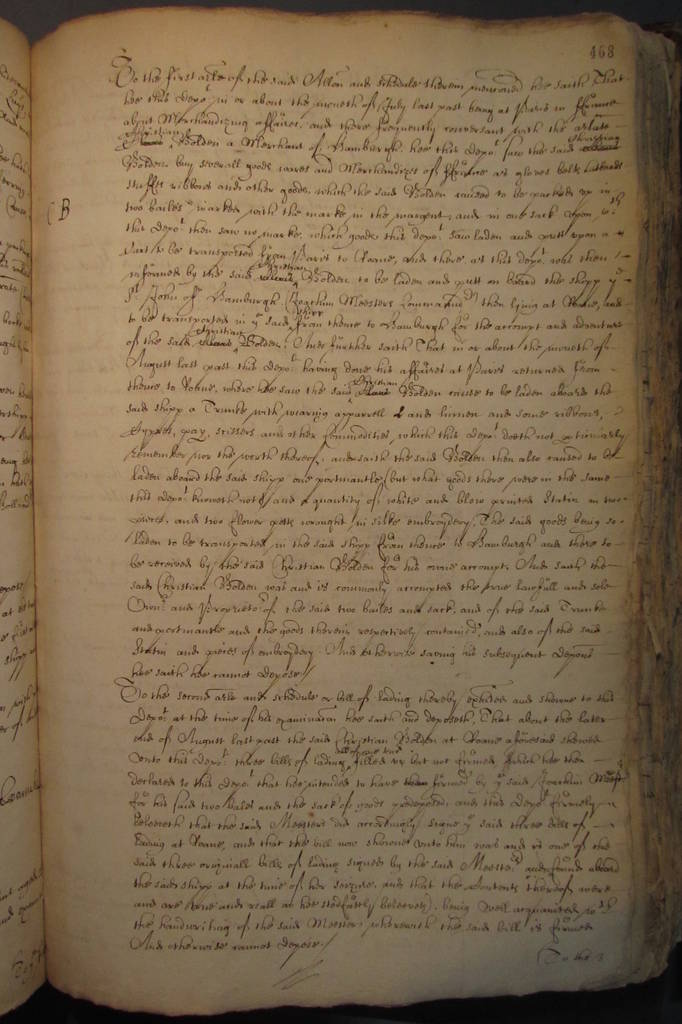 468
To the first arle of the said Allon and schedule therein mencioned hee saith That
hee this depot in or about the moneth of July last past being at Paris in ffrance
about Merchandizing affaires, and there frequently conversant with the arlate
Christian Bolden a Merchant of Hamburgh, hee this depot saw the said Christian
Bolden buy severall goods wares and Merchandizes of ffrance as gloves belts hatbands
stuffs ribbons and other goods, which the said Bolden caused to be packed up in
two bailes marked with the marke in the margent, and in one sack upon wch
CB
this depot then saw no marke, which goods this depot saw laden and putt upon a
to be transported from Paris to Roane, and there, as this depot was then
informed by the said Christian Bolden, to be laden and putt on board the shipp ye
St John of Hamburgh (Joachim Meesters Commandr) then lying at Roane, and
to be transported in ye said shipp from thence to Hamburgh for the accompt and adventure
of the said Christian Bolden; And further saith That in or about the moneth of
August last past this depot having done his affaires at Paris returned from
thence to Roane, where hee saw the said Christian Bolden cause to be laden aboard the
said shipp a Trunke with wearing apparrell and linnen and some ribbons,
scissers and other commodities, which this depot doeth not perticularly
remember nor the worth thereof, and saith the said Bolden then also caused to be
laden aboard the said shipp one portmantle (but what goods there were in the same
this depot knoweth not) and a quantity of white and blew printed Satin in two
pieces, and two flower potts wrought in silke embroydery, The said goods being so
laden to be transported in the said shipp from thence to Hamburgh and there to
be received by the said Christian Bolden for his owne accompt. And saith the
said Christian Bolden was and is commonly accompted the true lawfull and sole
Ownr and Proprietor of the said two bailes and sack, and of the said Trunke
and portmantle and the goods therein respectively contained, and also of the said
Satin and pieces of embroydery. And otherwise saving his subsequent deposns
hee saith hee cannot depose/
To the second arle and schedule or bill of lading thereby exhited and showne to this
depot at the time of his examinacon hee saith and deposeth, That about the later
end of August last past the said Christian Bolden at Roane aforesaid shewed
unto this depot three bills of lading all of one tenr filled up but not firmed which hee then
declared to this depot that hee intended to have firmed by ye said Joachim Meesters
for his said two bales and the sack of goods predeposed, and this depot firmely
beleeveth that the said Meesters did accordingly signe ye said three bills of
lading at Roane, and that the bill now showne unto him was and is one of the
said three originall bills of lading signed by the said Meesters and found aboard
the said shipp at the time of her seizure, and that the contents thereof were
and are true and reall as hee stedfastly beleeveth, being well acquainted wth
the handwriting of the said Meesters wherewith the said bill is firmed
And otherwise cannot depose/
To the 3